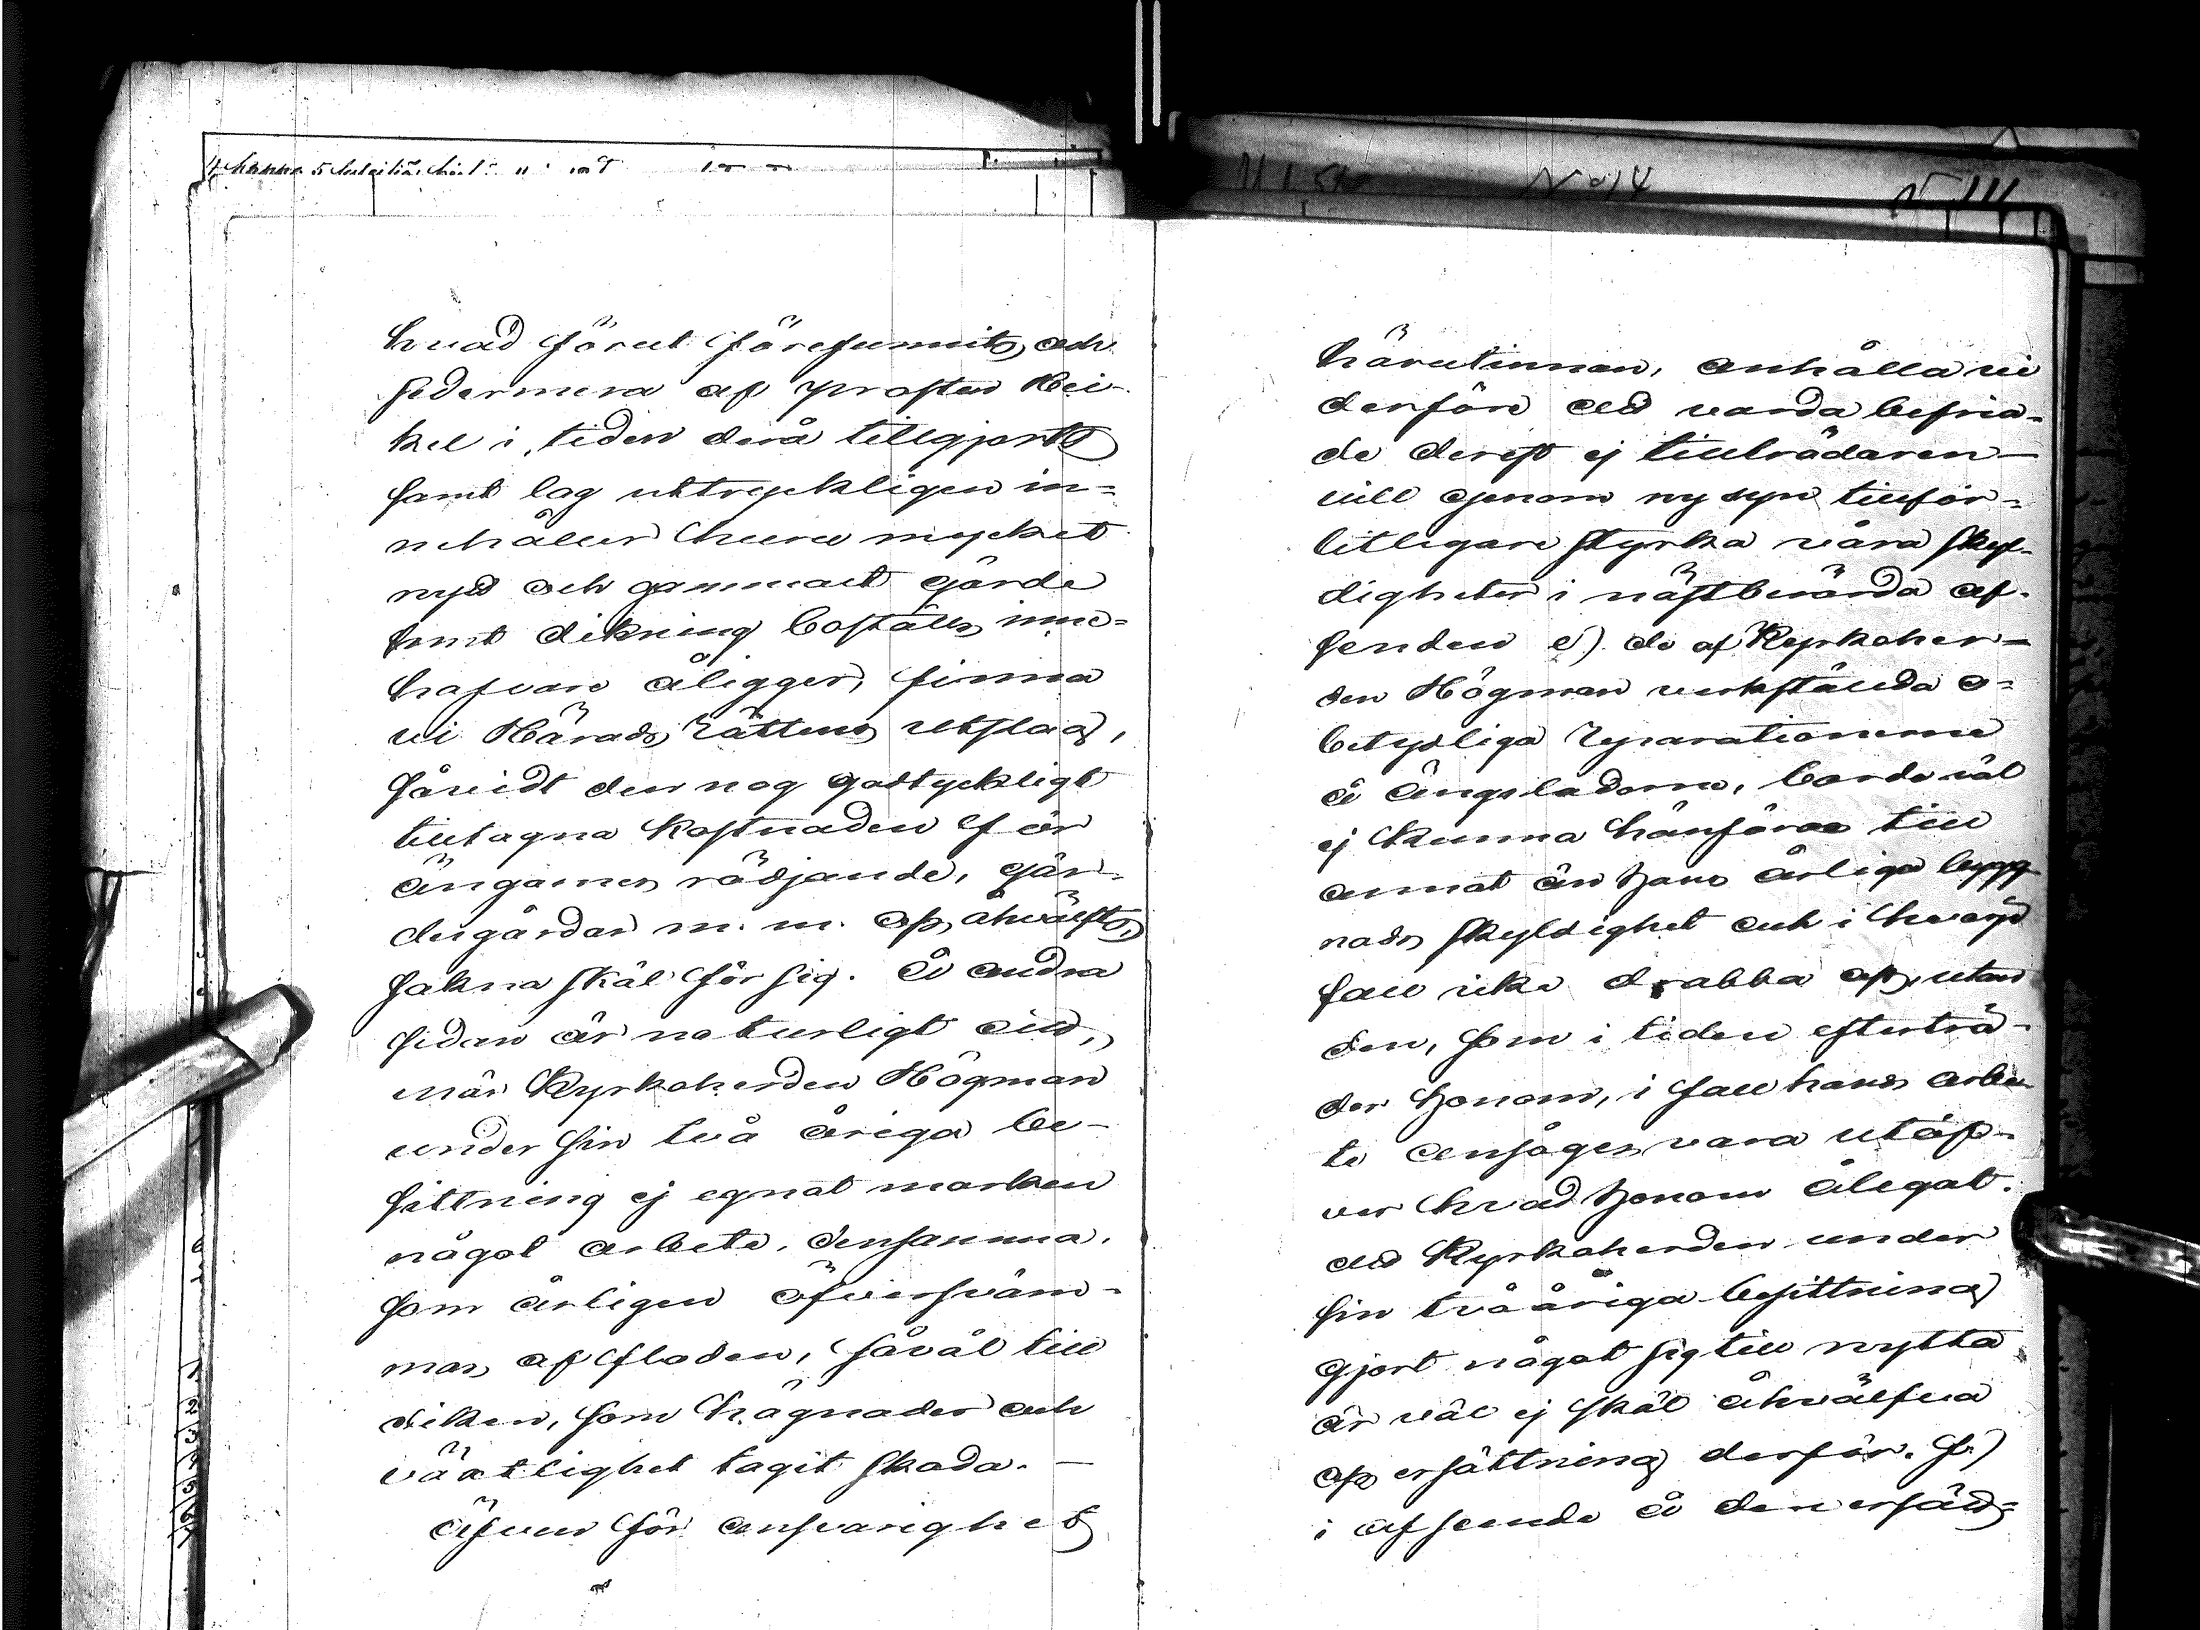 N:o 14
hvad förut förefunnits och
sedermera af prosten Hei-
kel i tiden derå tillgjorts
samt lag uttryckligen in-
nehåller huru mycket
nytt och gammalt gärde
samt dikning boställs inne-
hafvare åligger, finna
vi Härads Rättens utslag,
såvidt den nog godtyckligt
tilltagna kostnaden för
ängarnes rödjande, gär-
desgårdar m. m. oss åhvälfts,
sakna skäl för sig. Å andra
sidan är naturligt att,
när Kyrkoherden Högman
under sin två åriga be-
sittning ej egnat marken
något arbete, densamma,
som årligen öfversväm-
mas af floden, såväl till
diken, som hägnader och
växtlighet tagit skada. —
Äfven för ansvarighet
härutinnan, anhålla vi
derföre att varda befria-
de derest ej tillträdaren
vill genom ny syn tillför-
litligare styrka våra skyl-
digheter i nästberörda af-
seenden e) de af Kyrkoher-
den Högman verkställda o-
betydliga reparationerne
å ängsladorne, borde väl
ej kunna hänföras till
annat än hans årliga bygg-
nads skyldighet och i hvarje
fall icke drabba oss, utan
den, som i tiden efterträ-
der honom, i fall hans arbe-
te anseges vara utöf-
ver hvad honom ålegat.
att Kyrkoherden under
sin tvååriga besittning
gjort något sig till nytta
är väl ej skäl åhvälfva
oss ersättning derför. f)
i afseende å den ersätt-